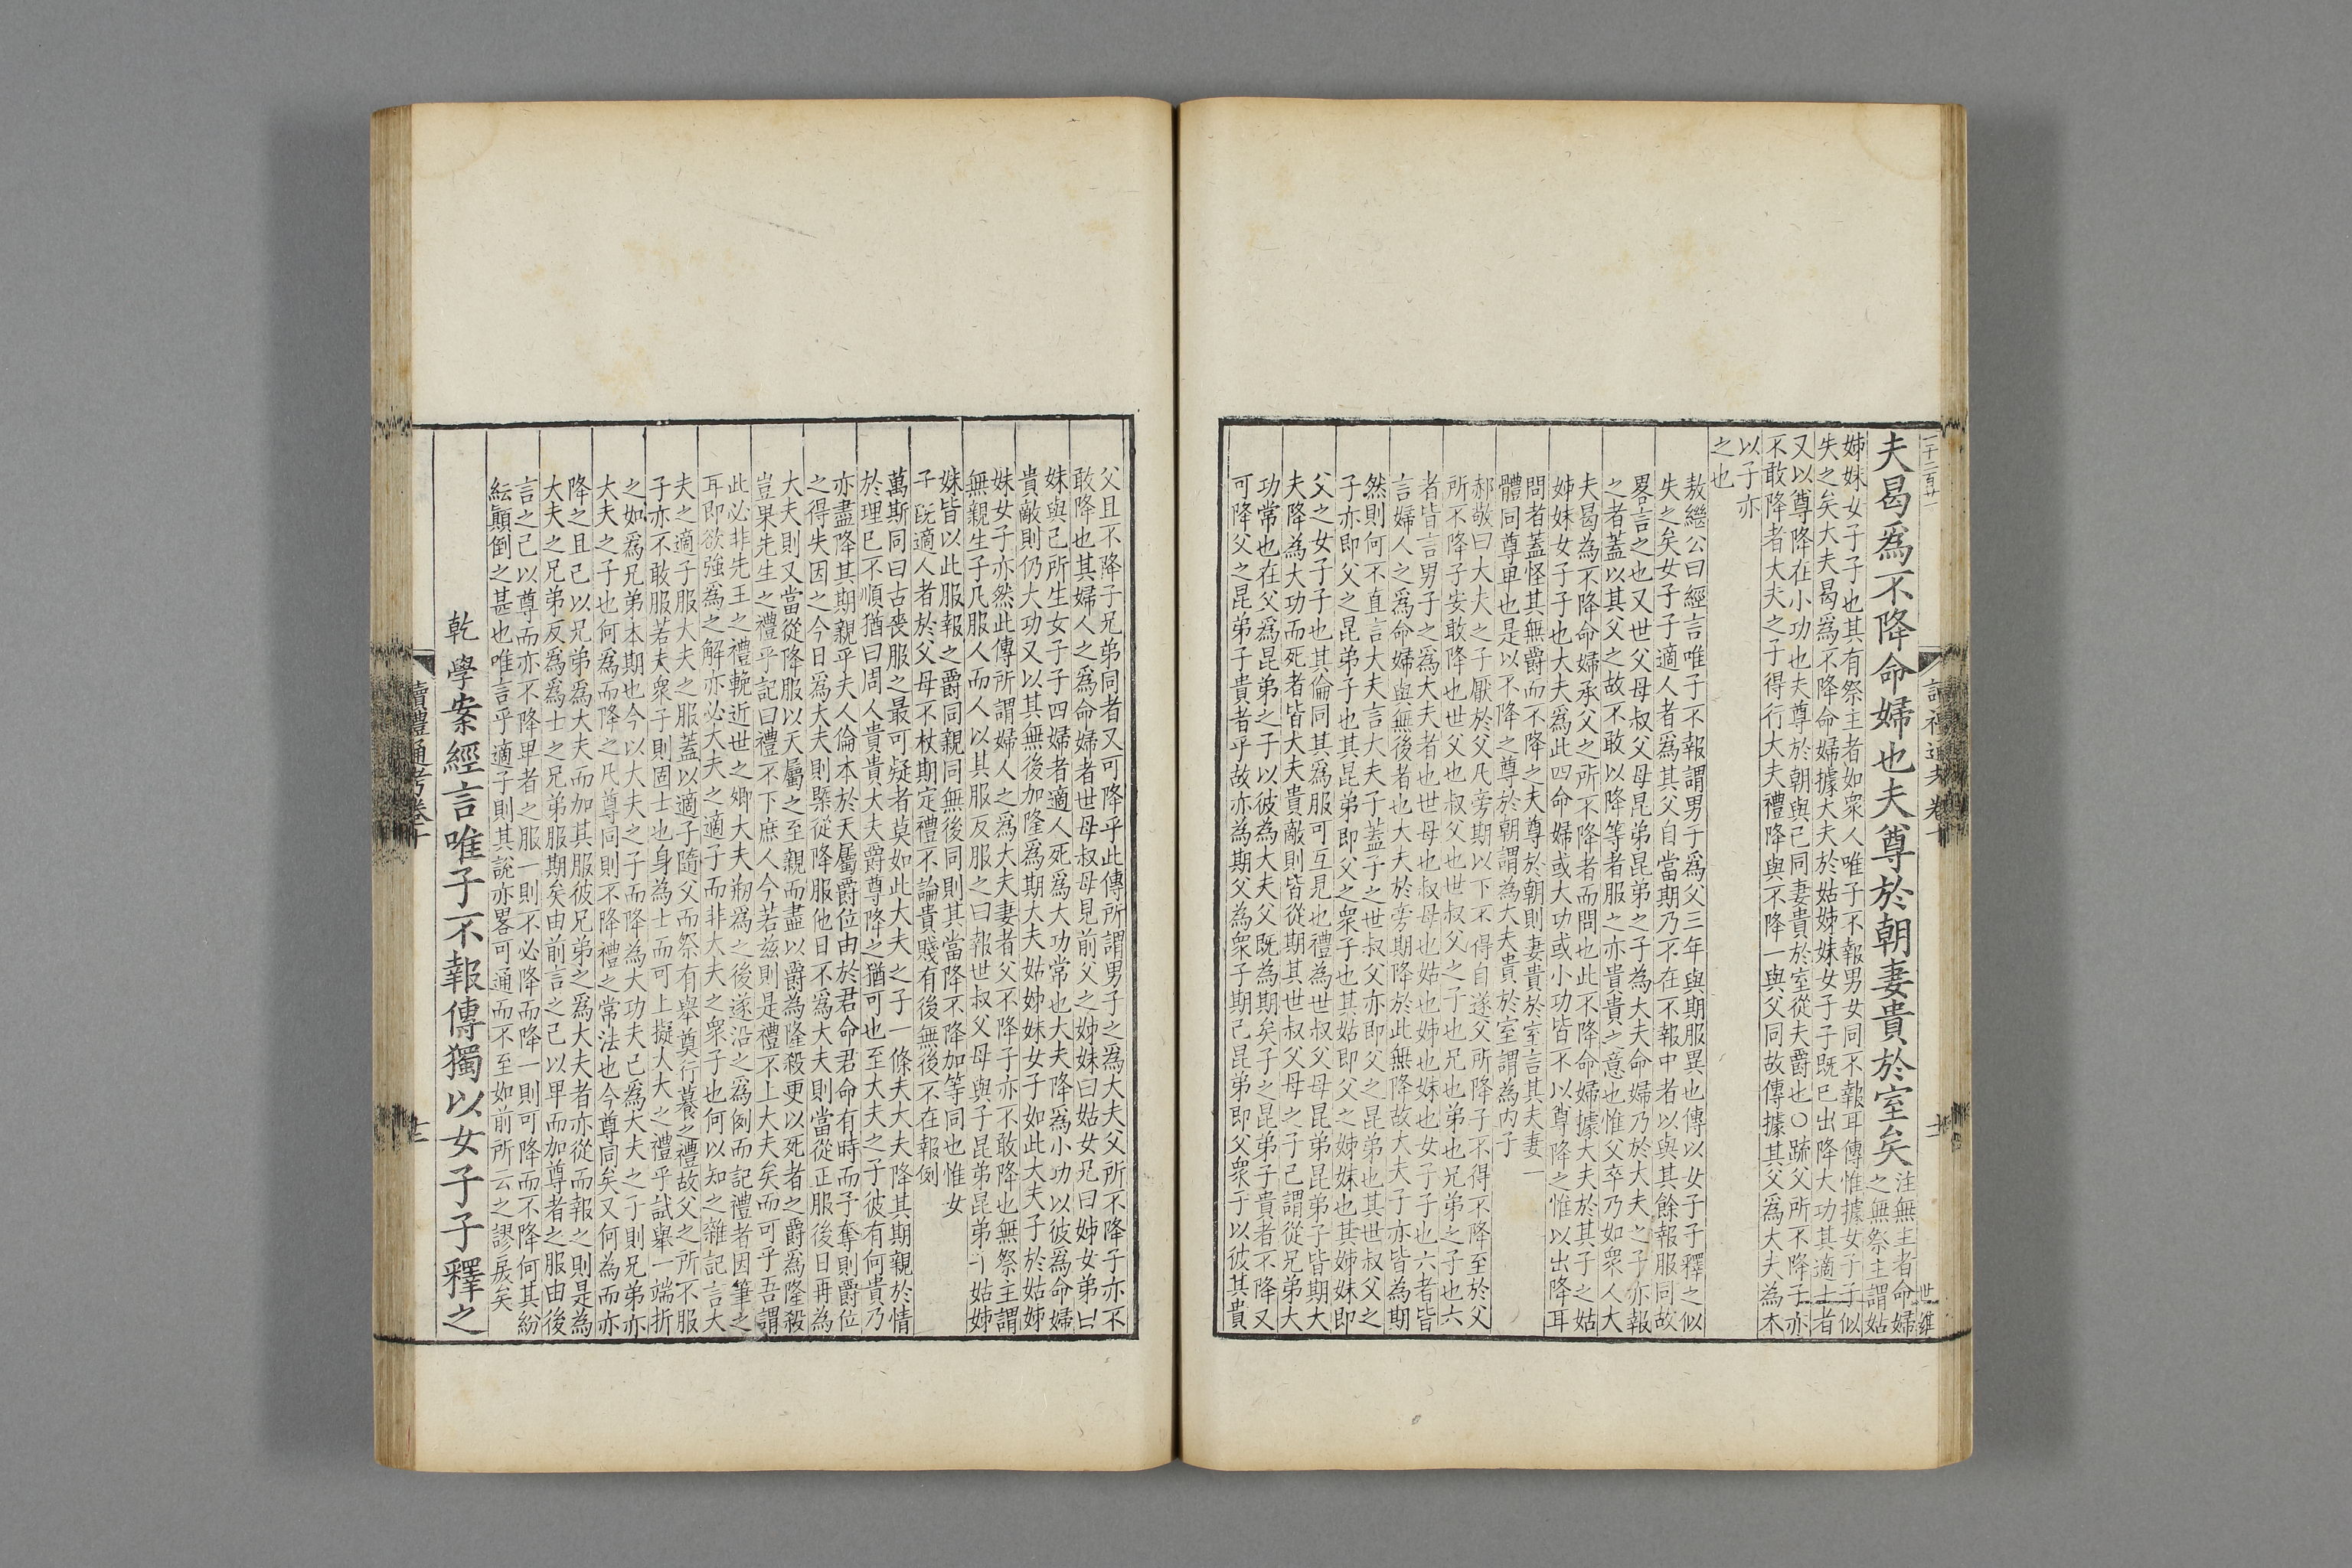 夫曷爲不降命婦也夫尊於朝妻貴於室矣
注無主者命婦
之無祭主謂姑
姊妹女子子也其有祭主者如衆人唯子不報男女同不報耳傳惟據女子子似
失之矣大夫曷爲不降命婦據大夫於姑姊妹女子子既已出降大功其適士者
又以尊降在小功也夫尊於朝與己同妻貴於室從夫爵也○疏父所不降子亦
不敢降者大夫之子得行大夫禮降與不降一與父同故傳據其父爲大夫為本
以子亦
之也
敖繼公曰經言唯子不報謂男子爲父三年與期服異也傳以女子子釋之似
失之矣女子子適人者爲其父自當期乃不在不報中者以與其餘報服同故
畧言之也又世父母叔父母昆弟昆弟之子為大夫命婦乃於大夫之子亦報
之者蓋以其父之故不敢以降等者服之亦貴貴之意也惟父卒乃如衆人大
夫曷為不降命婦承父之所不降者而問也此不降命婦據大夫於其子之姑
姊妹女子子也大夫爲此四命婦或大功或小功皆不以尊降之惟以出降耳
問者蓋怪其無爵而不降之夫尊於朝則妻貴於室言其夫妻一
體同尊卑也是以不降之尊於朝謂為大夫貴於室謂為内子
郝敬曰大夫之子厭於父凡旁期以下不得自遂父所降子不得不降至於父
所不降子安敢降也世父也叔父也世叔父之子也兄也弟也兄弟之子也六
者皆言男子之爲大夫者也世母也叔母也姑也姊也妹也女子子也六者皆
言婦人之為命婦與無後者也大夫於旁期降於此無降故大夫子亦皆為期
然則何不直言大夫言大夫子蓋子之世叔父亦即父之昆弟也其世叔父之
子亦即父之昆弟子也其昆弟即父之衆子也其姑即父之姊妹也其姊妹即
父之女子子也其倫同其爲服可互見也禮為世叔父母昆弟昆弟子皆期大
夫降為大功而死者皆大夫貴敵則皆從期其世叔父母之子己謂從兄弟大
功常也在父爲昆弟之子以彼為大夫父既為期矣子之昆弟子貴者不降又
可降父之昆弟子貴者乎故亦為期父為衆子期己昆弟即父衆子以彼其貴
父且不降子兄弟同者又可降乎此傳所謂男子之爲大夫父所不降子亦不
敢降也其婦人之爲命婦者世母叔母見前父之姊妹曰姑女兄曰姊女弟曰
妹與己所生女子子四婦者適人死爲大功常也大夫降爲小功以彼爲命婦
貴敵則仍大功又以其無後加隆爲期大夫姑姊妹女子如此大夫子於姑姊
妹女子亦然此傳所謂婦人之爲大夫妻者父不降子亦不敢降也無祭主謂
無親生子凡服人而人以其服反服之曰報世叔父母與子昆弟昆弟子姑姊
妹皆以此服報之爵同親同無後同則其當降不降加等同也惟女
子既適人者於父母不杖期定禮不論貴賤有後無後不在報例
萬斯同曰古喪服之最可疑者莫如此大夫之子一條夫大夫降其期親於情
於理已不順猶曰周人貴貴大夫爵尊降之猶可也至大夫之子彼有何貴乃
亦盡降其期親乎夫人倫本於天屬爵位由於君命君命有時而予奪則爵位
之得失因之今日爲大夫則槩從降服他日不爲大夫則當從正服後日再為
大夫則又當從降服以天屬之至親而盡以爵為隆殺更以死者之爵爲隆殺
豈果先生之禮乎記曰禮不下庶人今若兹則是禮不上大夫矣而可乎吾謂
此必非先王之禮輓近世之卿大夫刱爲之後遂沿之爲例而記禮者因筆之
耳即欲強為之解亦必大夫之適子而非大夫之衆子也何以知之雜記言大
夫之適子服大夫之服蓋以適子隨父而祭有舉奠行養之禮故父之所不服
子亦不敢服若夫衆子則固士也身為士而可上擬人大之禮乎試舉一端折
之如爲兄弟本期也今以大夫之子而降為大功夫已爲大夫之子則兄弟亦
大夫之子也何爲而降之凡尊同則不降禮之常法也今尊同矣又何為而亦
降之且己以兄弟爲大夫而加其服彼兄弟之爲大夫者亦從而報之則是為
大夫之兄弟反爲爲士之兄弟服期矣由前言之己以卑而加尊者之服由後
言之己以尊而亦不降卑者之服一則不必降而降一則可降而不降何其紛
紜顚倒之甚也唯言乎適子則其說亦畧可通而不至如前所云之謬戾矣
乾學案經言唯子不報傳獨以女子子釋之
讀禮通考卷十